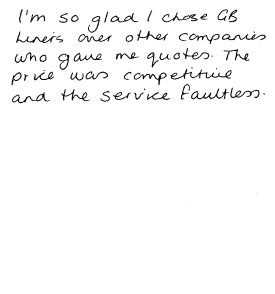 I'm so glad I chose GB
Liners over other companies
who gave me quotes. The
price was competitive
and the service faultless.